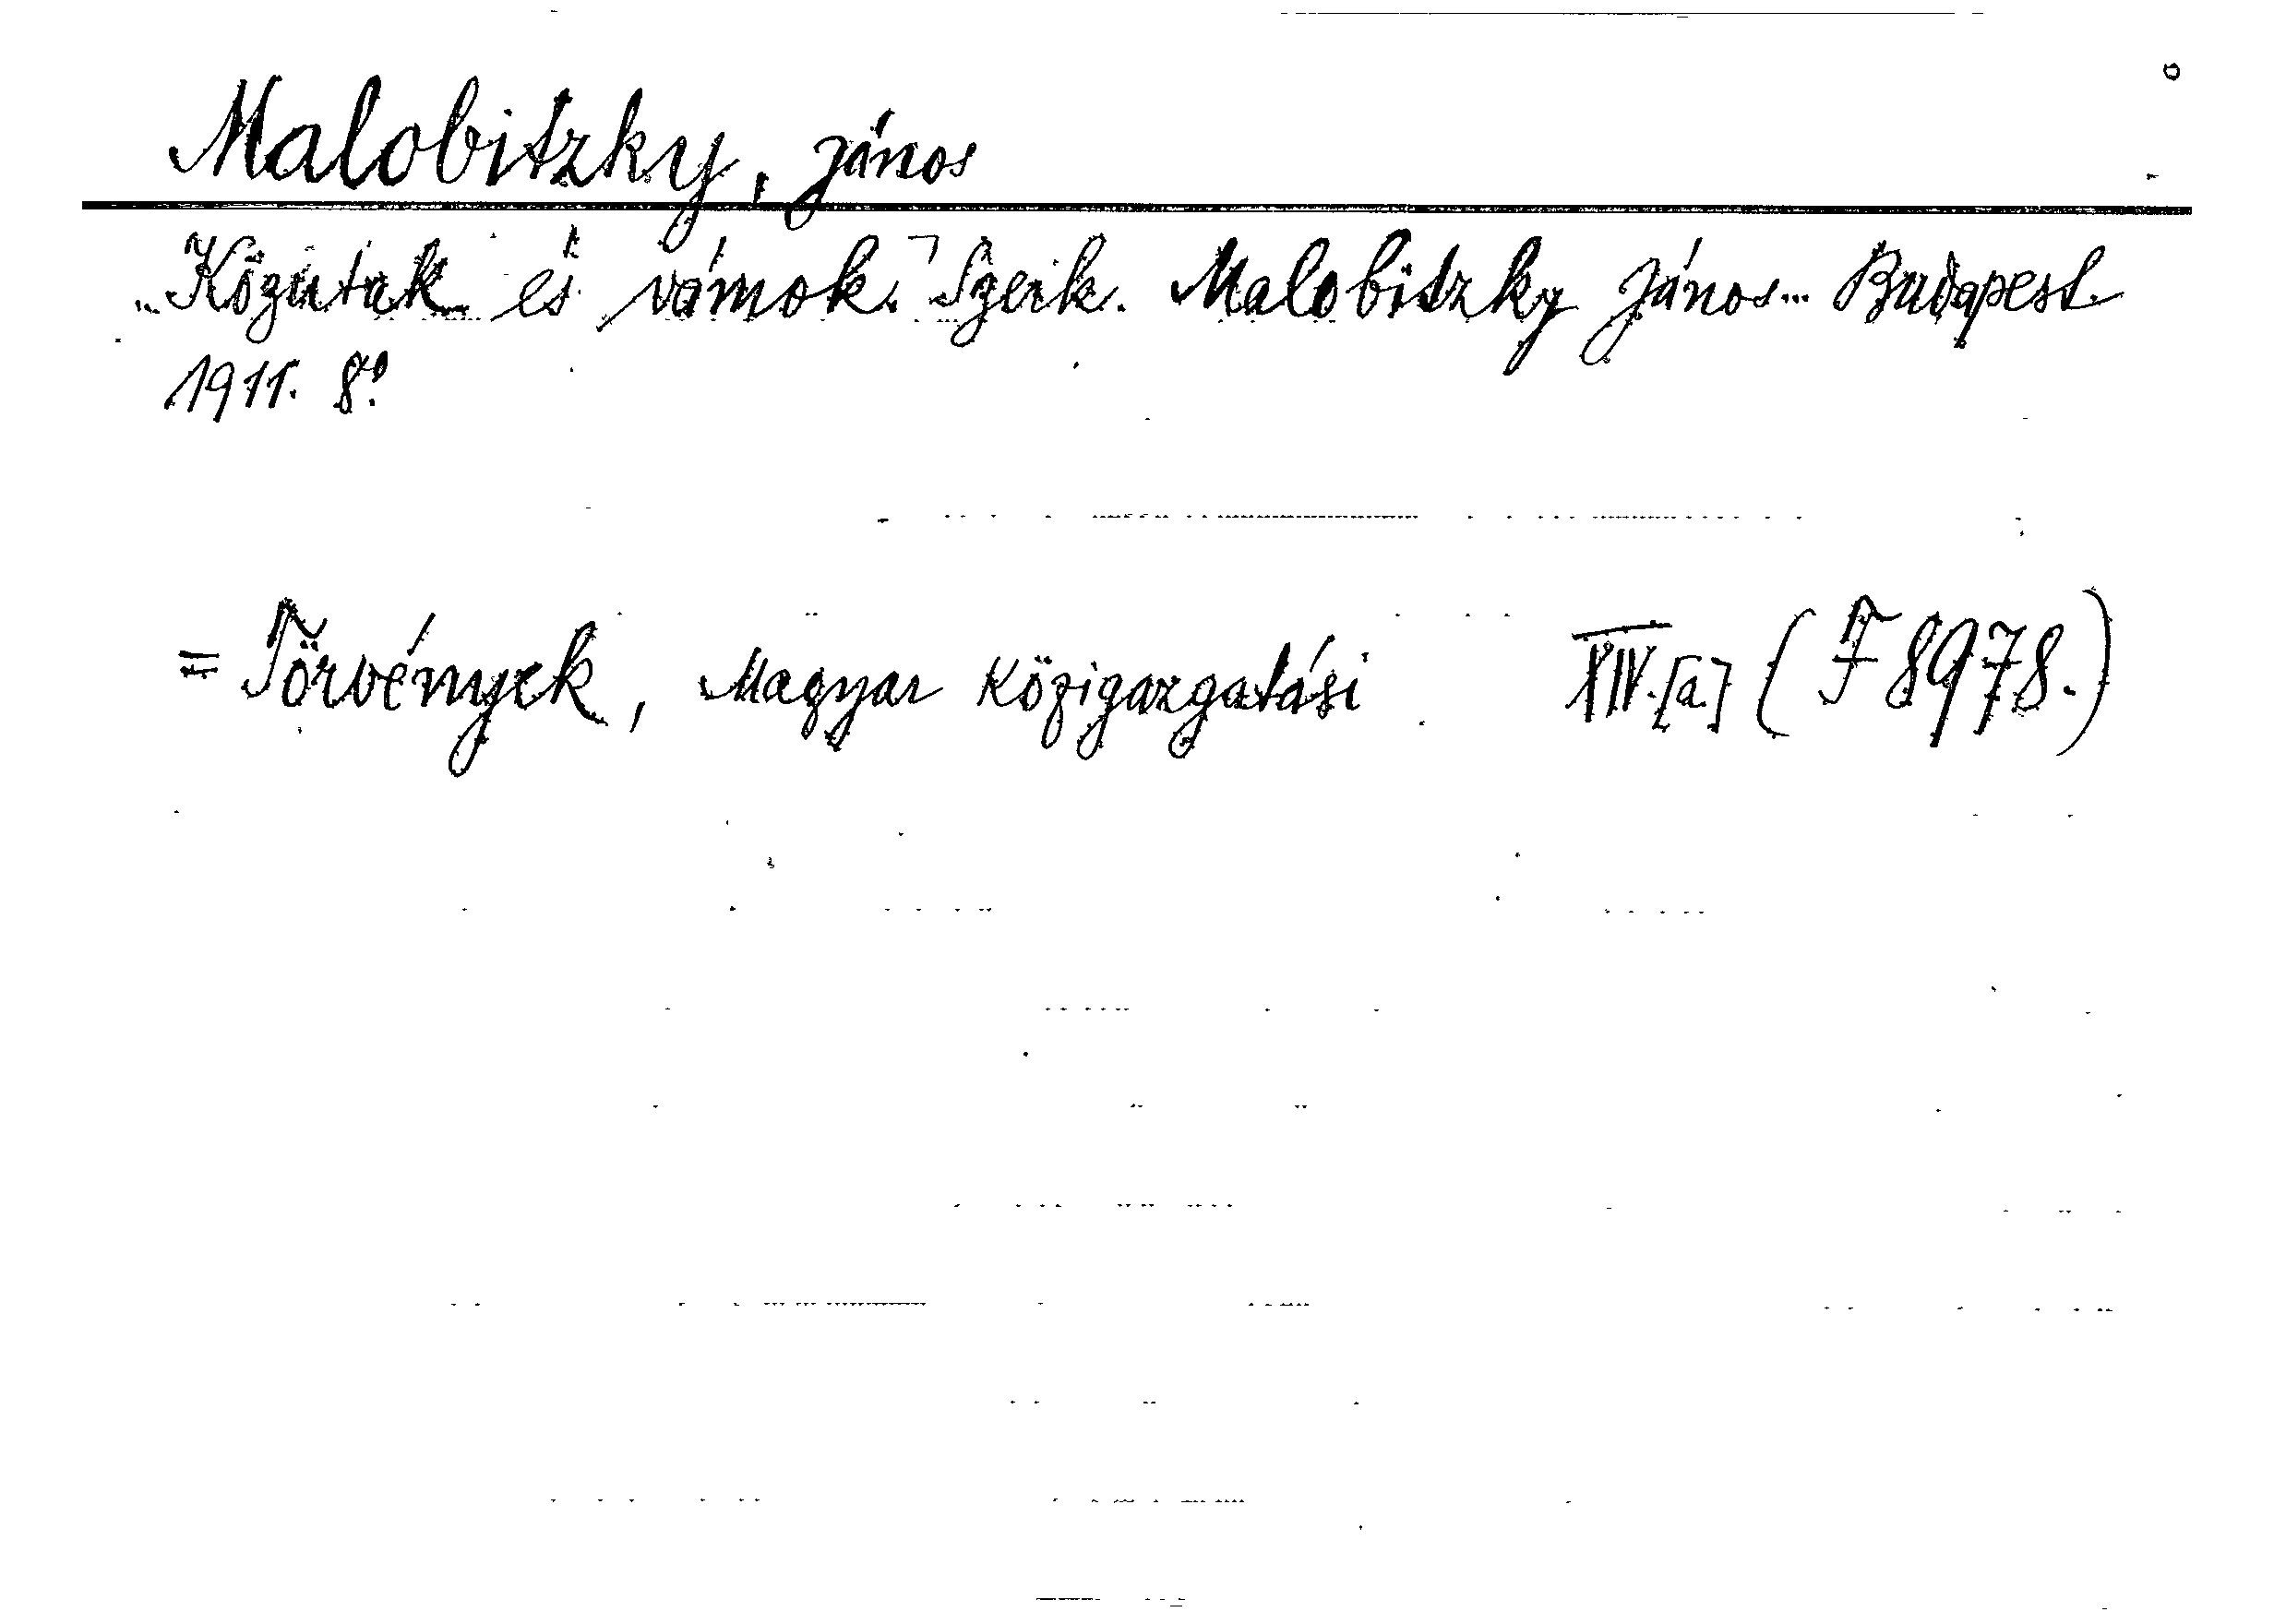 Malobitzky, János
„Közutak és vámok.” Szerk. Malobitzky János... Budapest.
1911. 8°.
= Törvények, Magyar közigazgatási XIV.[a.] (F 8978.)